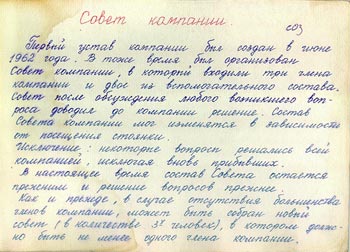 Совет кампании.
соз
Первый устав кампании был создан в июне
1962 года. В тоже время был организован
Совет кампании, в который входили три члена
кампании и двое из вспомогательного состава.
Совет после обсуждения любого возникшего воп-
роса доводил до кампании решение. Состав
Совета кампании мог изменятся в зависимости
от посещения стоянки.
Исключение: некоторые вопросы решались всей
кампанией, исключая вновь прибывших.
В настоящее время состав Совета остается
прежним и решение вопросов прежнее.
Как и прежде, в случае отсутствия большинства
членов кампании, может быть собран новый
совет (в количестве 3х человек), в котором долж-
но быть не менее одного члена кампании.